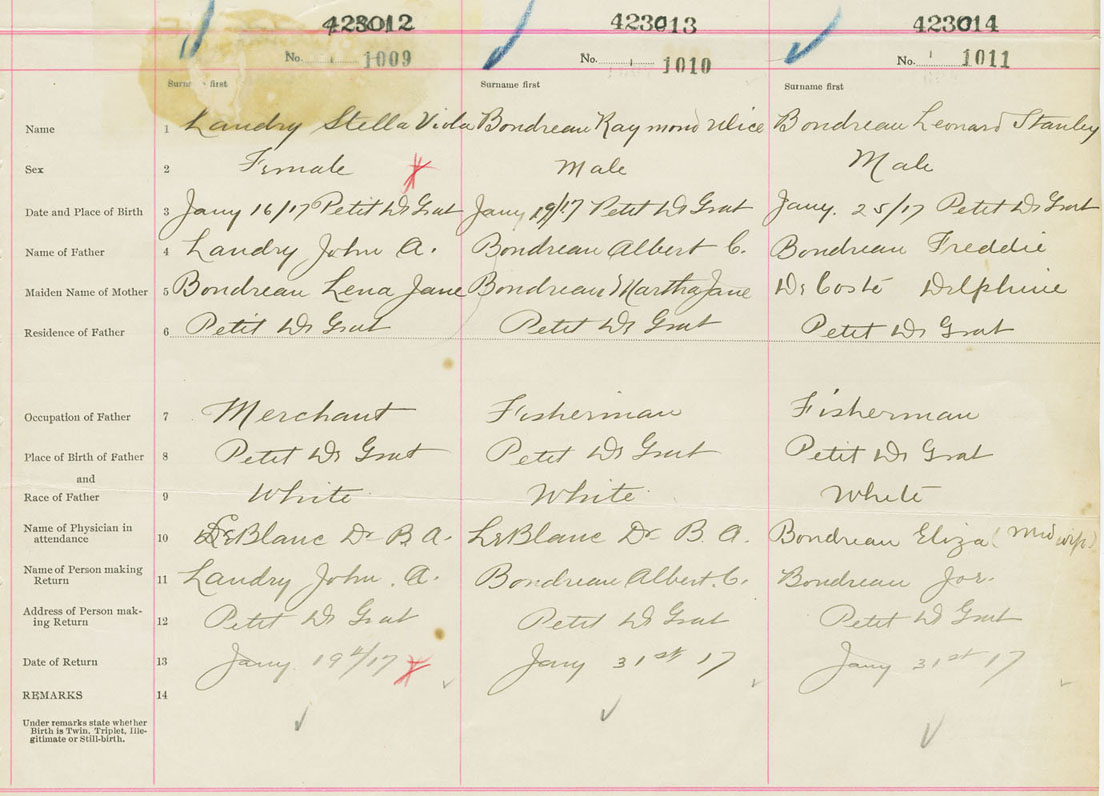 423012 423013 423014
No. 1009 No. 1010 No. 1011
Surname first Surname first Surname first
Name 1 Landry Stella Viola Bondreau Raymond Bondreau Leonard Stanley
Sex 2 Female Male Male
Date and Place of Birth 3 Jany 16/17 Petit De Grat Jany 19/17 Petit De Grat Jany. 25/17 Petit De Grat
Name of Father 4 Landry John A. Bondreau Albert C. Bondreau Freddie
Maiden Name of Mother 5 Bondreau Lena Jane Bondreau Martha Jane De Coste Delphine
Residence of Father 6 Petit De Grat Petit De Grat Petit De Grat
Occupation of Father 7 Merchant Fisherman Fisherman
Place of Birth of Father 8 Petit De Grat Petit De Grat Petit De Grat
and
Race of Father 9 White White White
Name of Physician in attendance 10 LeBlanc Dr B A. LeBlanc Dr B A. Bondreau Eliza (Midwife)
Name of Person making Return 11 Landry John. A. Bondreau Albert. C. Bondreau Jos.
Address of Person mak-ing Return 12 Petit De Grat Petit De Grat Petit De Grat
Date of Return 13 Jany 19th/17 Jany 31st 17 Jany 31st 17
REMARKS 14
Under remarks state whether
Birth is Twin, Triplet, Ille-
gitimate or Still-birth.